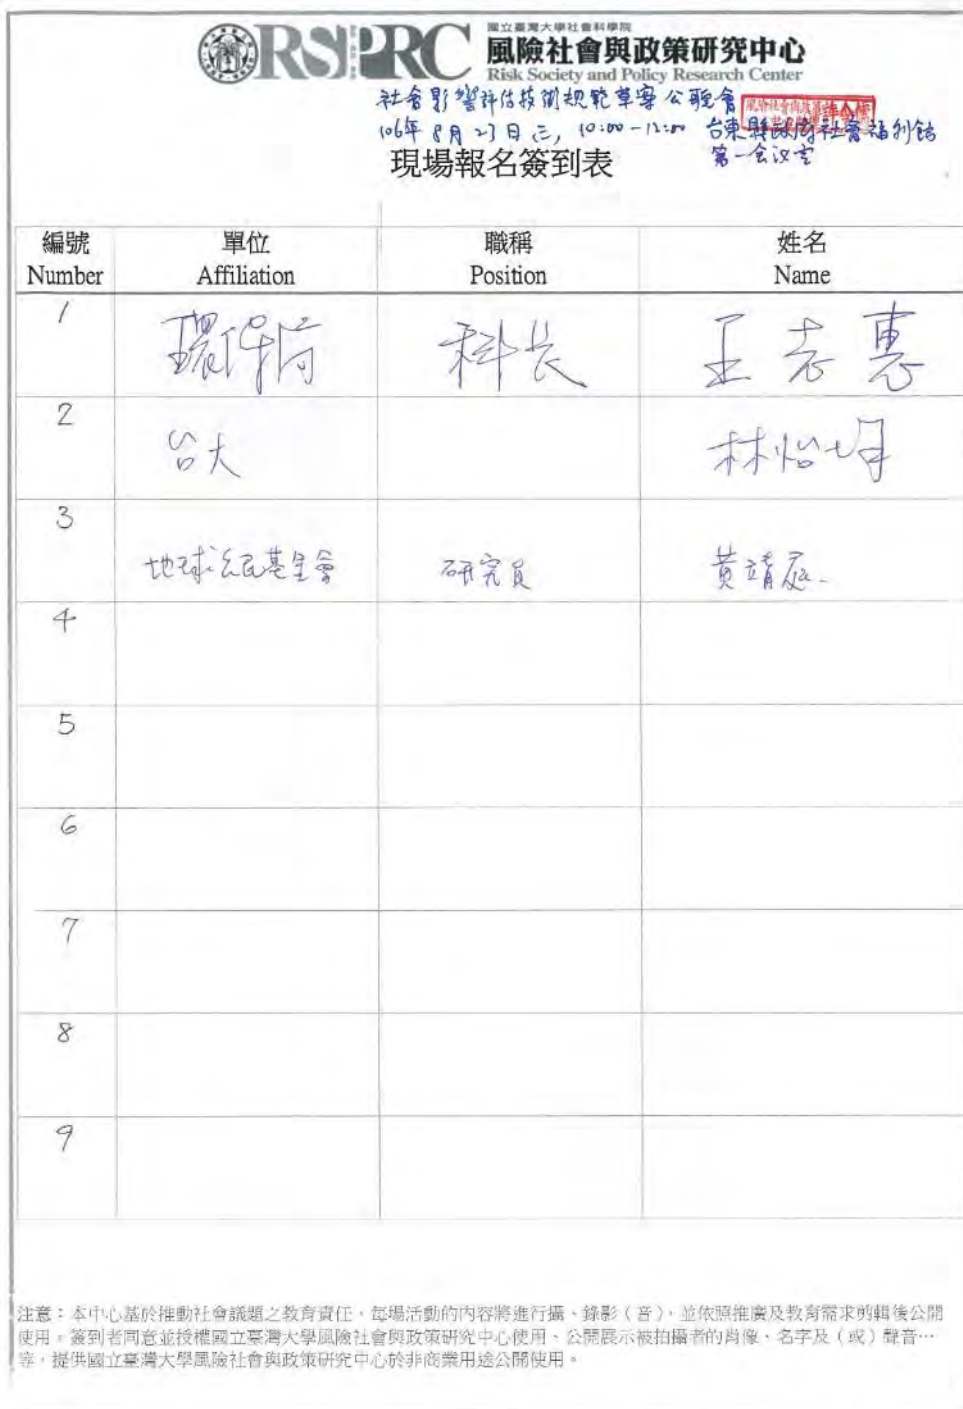 RSPRC
國立臺灣大學社會科學院
風險社會與政策研究中心
Risk Society and Policy Research Center
社會影響評估技術規範草案公聽會
106年8月23日三, 10:00-12:00 台東縣政府社會福利館
第一会议室
現場報名簽到表
編號 單位 職稱 姓名
Number Affiliation Position Name
1 環保署 科長 王志惠
2 台大 林怡
3 地球公民基金會 研究員 黃靖庭
4
5
6
7
8
9
注意：本中心基於推動社會議題之教育責任，每場活動的內容將進行攝、錄影（音），並依照推廣及教育需求剪輯後公開
使用。簽到者同意並授權國立臺灣大學風險社會與政策研究中心使用、公開展示被拍攝者的肖像、名字及（或）聲音…
等，提供國立臺灣大學風險社會與政策研究中心於非商業用途公開使用。